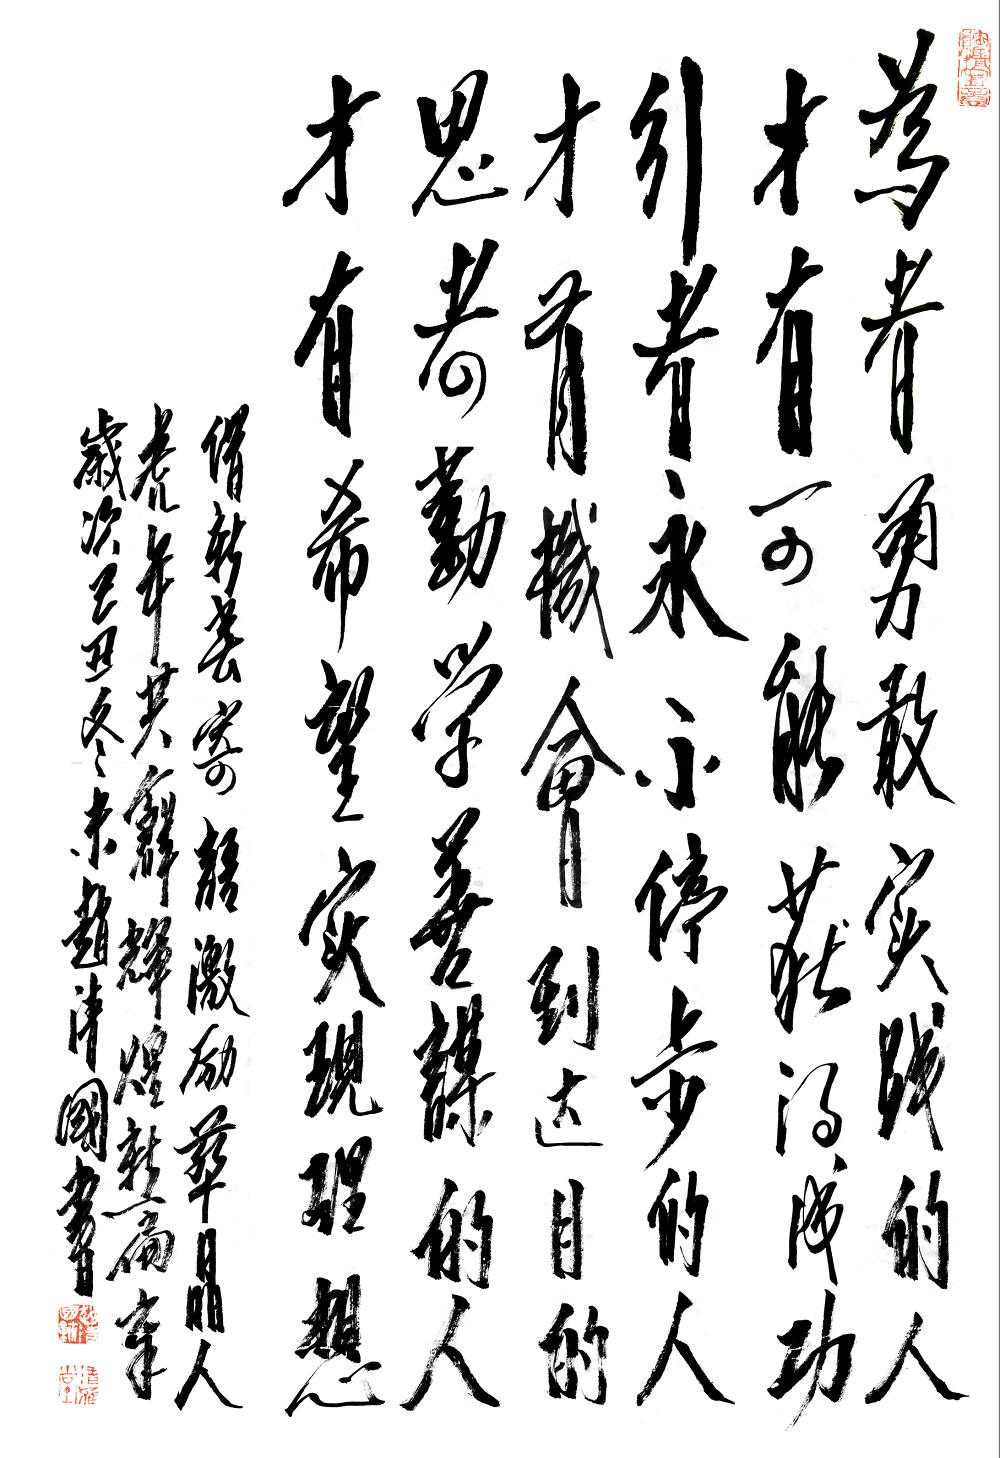 為者勇敢实践的人
才有可能获得成功
引者永不停步的人
才有機會到达目的
思者勤学善謀的人
才有希望实現理想
借新春寄語激励華晶人
虎年共輝煌新篇章
歲次己丑冬末趙清國書